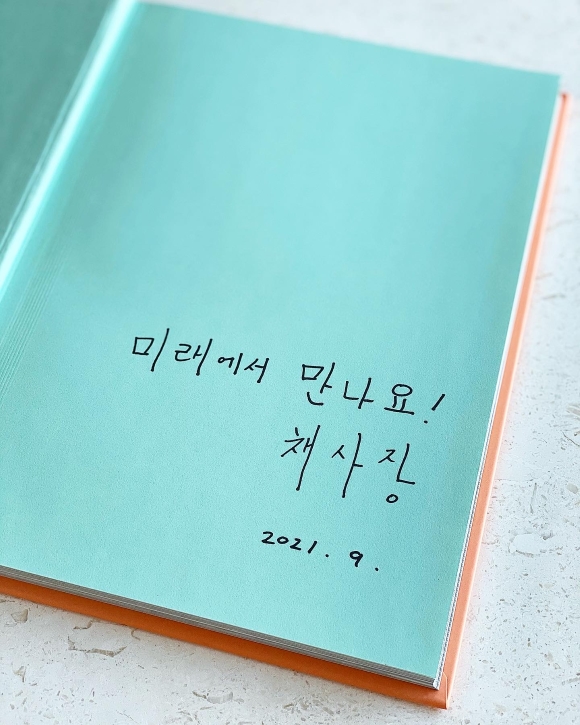 미래에서 만나요!
채사장
2021. 9.